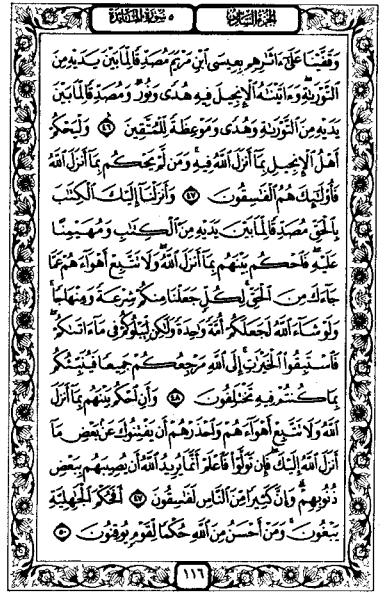 الجزء السادس
٥ سورة المائدة
وَقَفَّيْنَا عَلَىٰٓ ءَاثَٰرِهِم بِعِيسَى ٱبْنِ مَرْيَمَ مُصَدِّقًا لِّمَا بَيْنَ يَدَيْهِ مِنَ
ٱلتَّوْرَىٰةِۖ وَءَاتَيْنَٰهُ ٱلْإِنجِيلَ فِيهِ هُدًى وَنُورٌ وَمُصَدِّقًا لِّمَا بَيْنَ
يَدَيْهِ مِنَ ٱلتَّوْرَىٰةِ وَهُدًى وَمَوْعِظَةً لِّلْمُتَّقِينَ ٤٦ وَلْيَحْكُمْ
أَهْلُ ٱلْإِنجِيلِ بِمَآ أَنزَلَ ٱللَّهُ فِيهِۚ وَمَن لَّمْ يَحْكُم بِمَآ أَنزَلَ ٱللَّهُ
فَأُو۟لَٰٓئِكَ هُمُ ٱلْفَٰسِقُونَ ٤٧ وَأَنزَلْنَآ إِلَيْكَ ٱلْكِتَٰبَ
بِٱلْحَقِّ مُصَدِّقًا لِّمَا بَيْنَ يَدَيْهِ مِنَ ٱلْكِتَٰبِ وَمُهَيْمِنًا
عَلَيْهِۖ فَٱحْكُم بَيْنَهُم بِمَآ أَنزَلَ ٱللَّهُۖ وَلَا تَتَّبِعْ أَهْوَآءَهُمْ عَمَّا
جَآءَكَ مِنَ ٱلْحَقِّۚ لِكُلٍّ جَعَلْنَا مِنكُمْ شِرْعَةً وَمِنْهَاجًاۚ
وَلَوْ شَآءَ ٱللَّهُ لَجَعَلَكُمْ أُمَّةً وَٰحِدَةً وَلَٰكِن لِّيَبْلُوَكُمْ فِى مَآ ءَاتَىٰكُمْۖ
فَٱسْتَبِقُوا۟ ٱلْخَيْرَٰتِۚ إِلَى ٱللَّهِ مَرْجِعُكُمْ جَمِيعًا فَيُنَبِّئُكُم
بِمَا كُنتُمْ فِيهِ تَخْتَلِفُونَ ٤٨ وَأَنِ ٱحْكُم بَيْنَهُم بِمَآ أَنزَلَ
ٱللَّهُ وَلَا تَتَّبِعْ أَهْوَآءَهُمْ وَٱحْذَرْهُمْ أَن يَفْتِنُوكَ عَنۢ بَعْضِ مَآ
أَنزَلَ ٱللَّهُ إِلَيْكَۖ فَإِن تَوَلَّوْا۟ فَٱعْلَمْ أَنَّمَا يُرِيدُ ٱللَّهُ أَن يُصِيبَهُم بِبَعْضِ
ذُنُوبِهِمْۗ وَإِنَّ كَثِيرًا مِّنَ ٱلنَّاسِ لَفَٰسِقُونَ ٤٩ أَفَحُكْمَ ٱلْجَٰهِلِيَّةِ
يَبْغُونَۚ وَمَنْ أَحْسَنُ مِنَ ٱللَّهِ حُكْمًا لِّقَوْمٍ يُوقِنُونَ ٥٠
١١٦